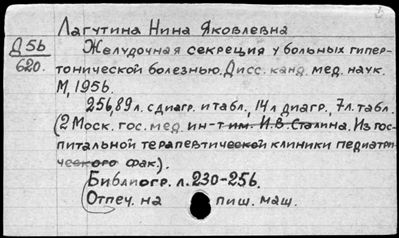 Лагутина Нина Яковлевна
Д56
620.
Желудочная секреция у больных гипер-
тонической болезнью. Дисс. канд. мед. наук.
М, 1956.
256,89 л. с диагр. и табл., 14 л диагр., 7 л. табл.
(2 Моск. гос. мед. ин-т им. И.В. Сталина. Из гос-
питальной терапевтической клиники педиатри-
ческого фак.).
Библиогр. л. 230-256.
Отпеч. на пиш. маш.